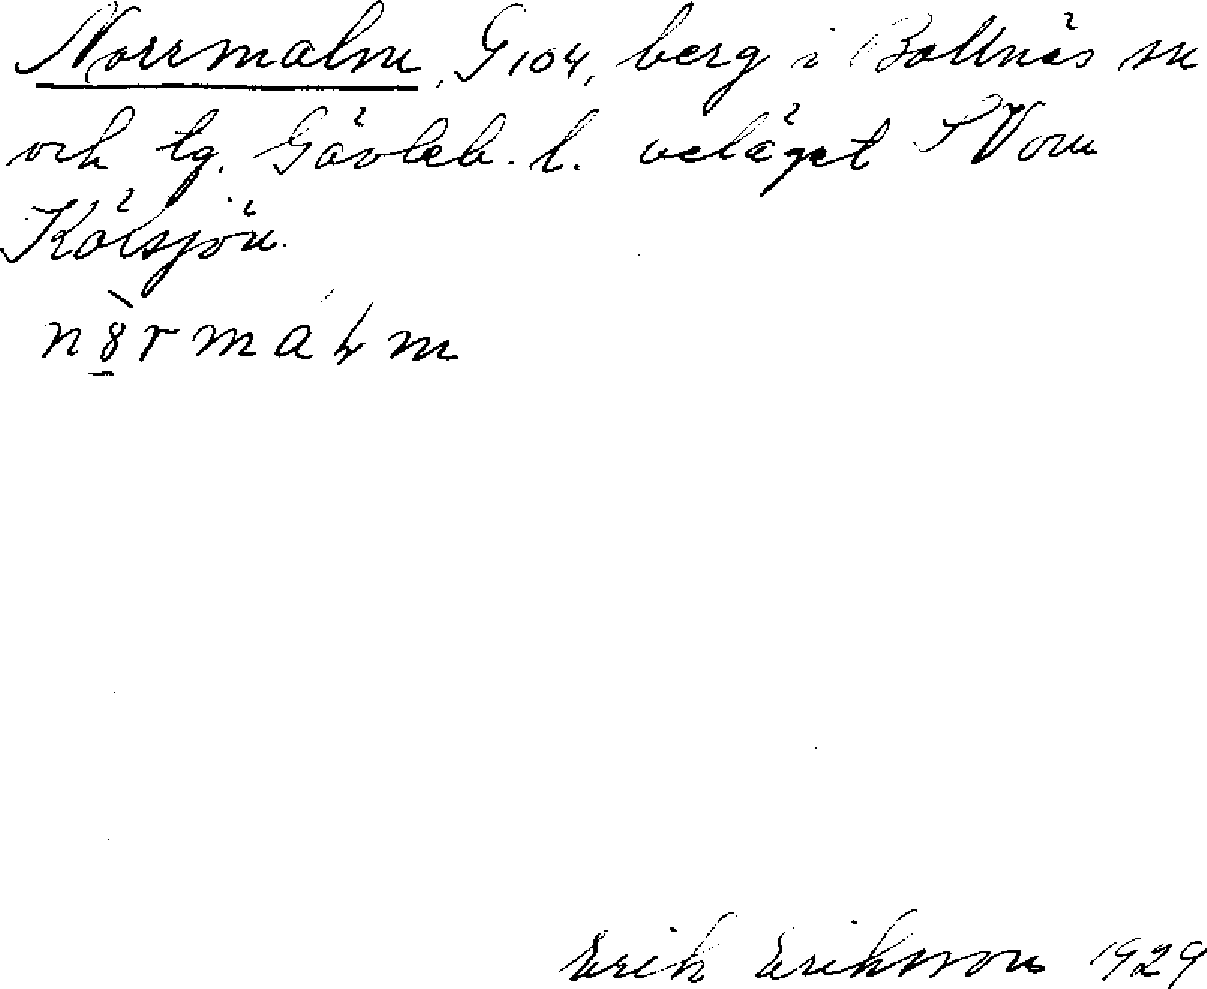 Norrmalm, G104, berg i Bollnäs sn
och tg. Gävleb. l. beläget SV om
Kölsjön.
n8̀rmaɫm
Erik Eriksson 1929